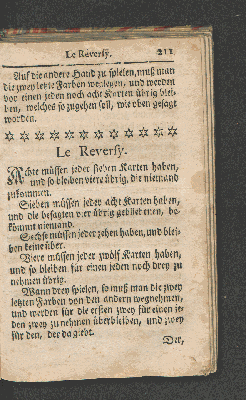 Le Reversy. 211
Auf die andere Hand zu spielen, muß man
die zwey letzte Farben weglegen, und werden
vor einen jeden noch acht Karten übrig blei-
ben, welches so zugehen soll, wie oben gesagt
worden.
Le Reversy.
Achte müssen jeder sieben Karten haben,
und so bleiben viere übrig, die niemand
zukommen.
Sieben müssen jeder acht Karten haben,
und die besagten vier übrig gebliebenen, be-
kommt niemand.
Sechse müssen jeder zehen haben, und blei-
ben keine über.
Viere müssen jeder zwölf Karten haben,
und so bleiben für einen jeden noch drey zu
nehmen übrig.
Wann drey spielen, so muß man die zwey
letzten Farben von den andern wegnehmen,
und werden für die ersten zwey für einen je-
den zwey zu nehmen überbleiben, und zwey
für den, der da giebt.
Der,